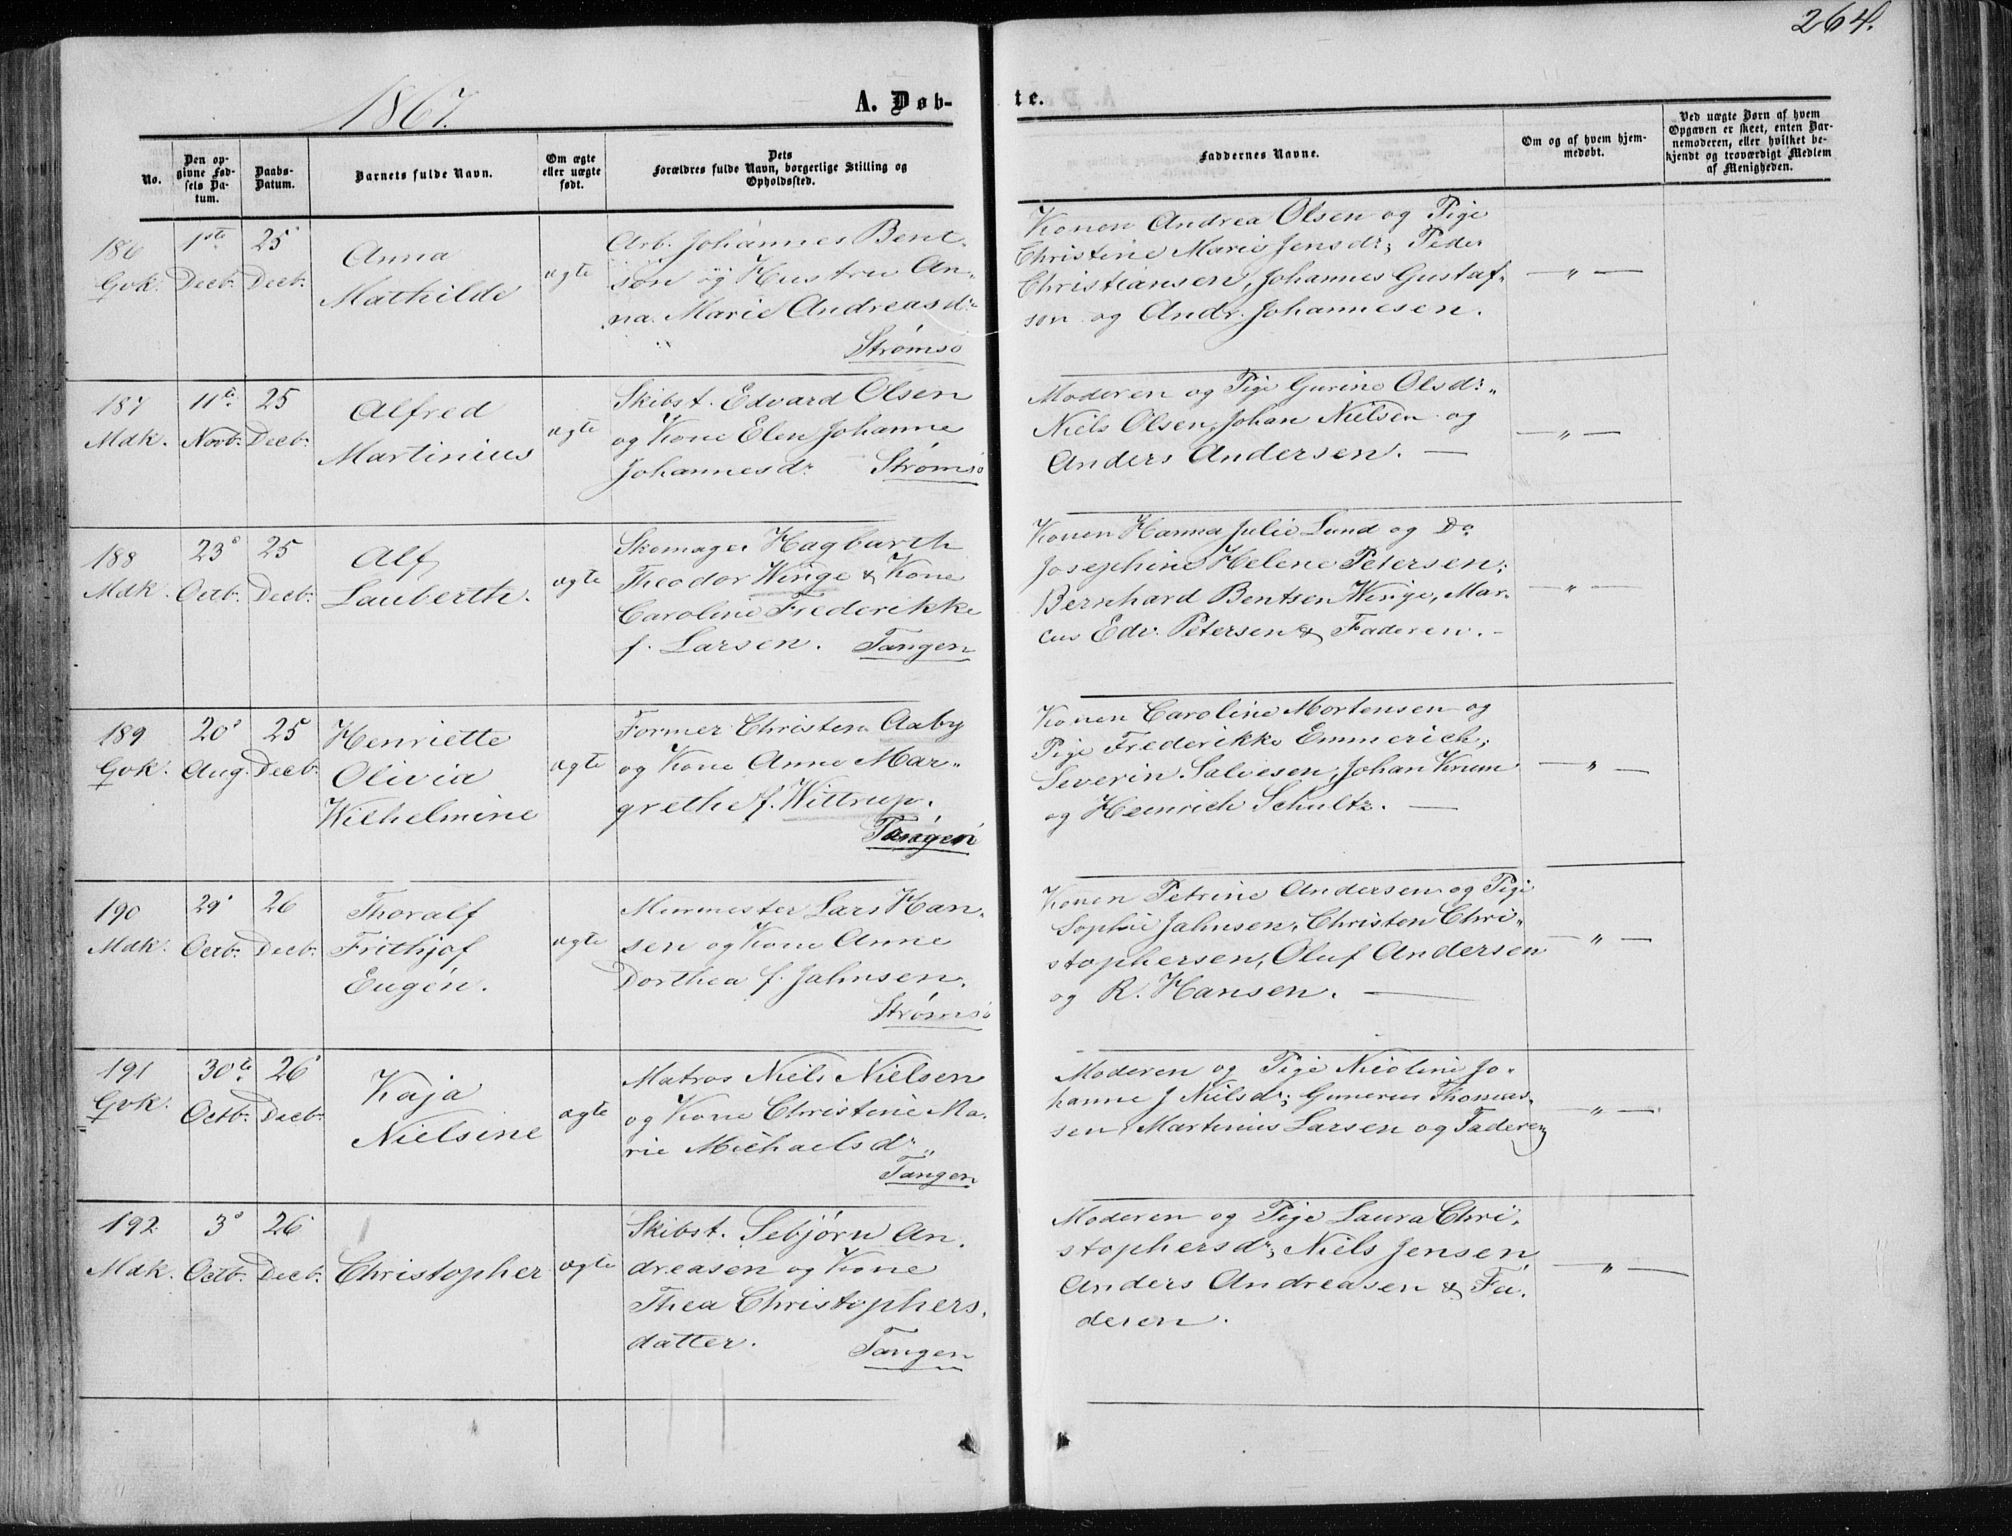 264.
1867.
A. Døb-
te.
No.
Den op-
givne Fød-
sels Da-
tum.
Daabs-
Datum.
Barnets fulde Navn.
Om ægte
eller uægte
født.
Dets
Forældres fulde Navn, borgerlige Stilling og
Opholdssted.
Faddernes Navne.
Om og af hvem hjem-
medøbt.
Ved uægte Børn af hvem
Opgaven er skeet, enten Bar-
nemoderen, eller hvilket be-
kjendt og troværdigt Medlem
af Menigheden.
186
Gvk.
1ste
Decb.
25
Decb.
Anna
Mathilde
ægte
Arb. Johannes Bent-
son og Hustru An-
na Marie Andreasdr.
Strømsø
Konen Andrea Olsen og Pige
Christine Marie Jensdr; Peder
Christiansen, Johannes Gustaf-
son og Andr. Johannesen.
— " —
187
Mdk.
11te
Novb.
25
Decb.
Alfred
Martinius
ægte
Skibst. Edvard Olsen
og Kone Elen Johanne
Johannesdr. Strømsø
Moderen og Pige Gurine Olsdr.
Niels Olsen, Johan Nielsen og
Anders Andersen. —
— " —
188
Mdk.
23
Octb.
25
Decb.
Alf
Lauberth.
ægte
Skomager Hagbarth
Theodor Winge & Kone
Caroline Frederikke
f. Larsen. Tangen
Konen Hanna Julie Lund og Do
Josephine Helene Petersen;
Bernhard Bentsen Winge, Mar-
cus Edv. Petersen & Faderen. -
— " —
189
Gvk.
20
Aug.
25
Decb.
Henriette
Olivia
Wilhelmine
ægte
Former Christen Aaby
og Kone Anne Mar-
grethe f. Wittrup.
Tangen
Konen Caroline Mortensen og
Pige Frederikke Emmerich;
Severin Salvesen, Johan Krum
og Heinrich Schultz. —
— " —
190
Mdk.
29
Octb.
26
Decb.
Thoralf
Frithjof
Eugén.
ægte
Lars Han-
sen og Kone Anne
Dorthea f. Jahnsen.
Strømsø
Konen Petrine Andersen og Pige
Sophie Jahnsen, Christen Chri-
stophersen, Oluf Andersen
og R. Hansen. —
— " —
191
Gvk.
30te
Octb.
26
Decb.
Kaja
Nielsine
ægte
Matros Niels Nielsen
og Kone Christine Ma-
rie Michaelsdr.
Tangen
Moderen og Pige Nicoline Jo-
hanne J Nielsdr; Gunerus Thomas-
sen, Martinius Larsen og Faderen
— " —
192
Mdk.
3
Octb.
26
Decb.
Christopher
ægte
Skibst. Sebjørn An-
dreasen og Kone
Thea Christophers-
datter. Tangen
Moderen og Pige Laura Chri-
stophersdr, Niels Jensen
Anders Andreasen & Fa-
deren.
— " —